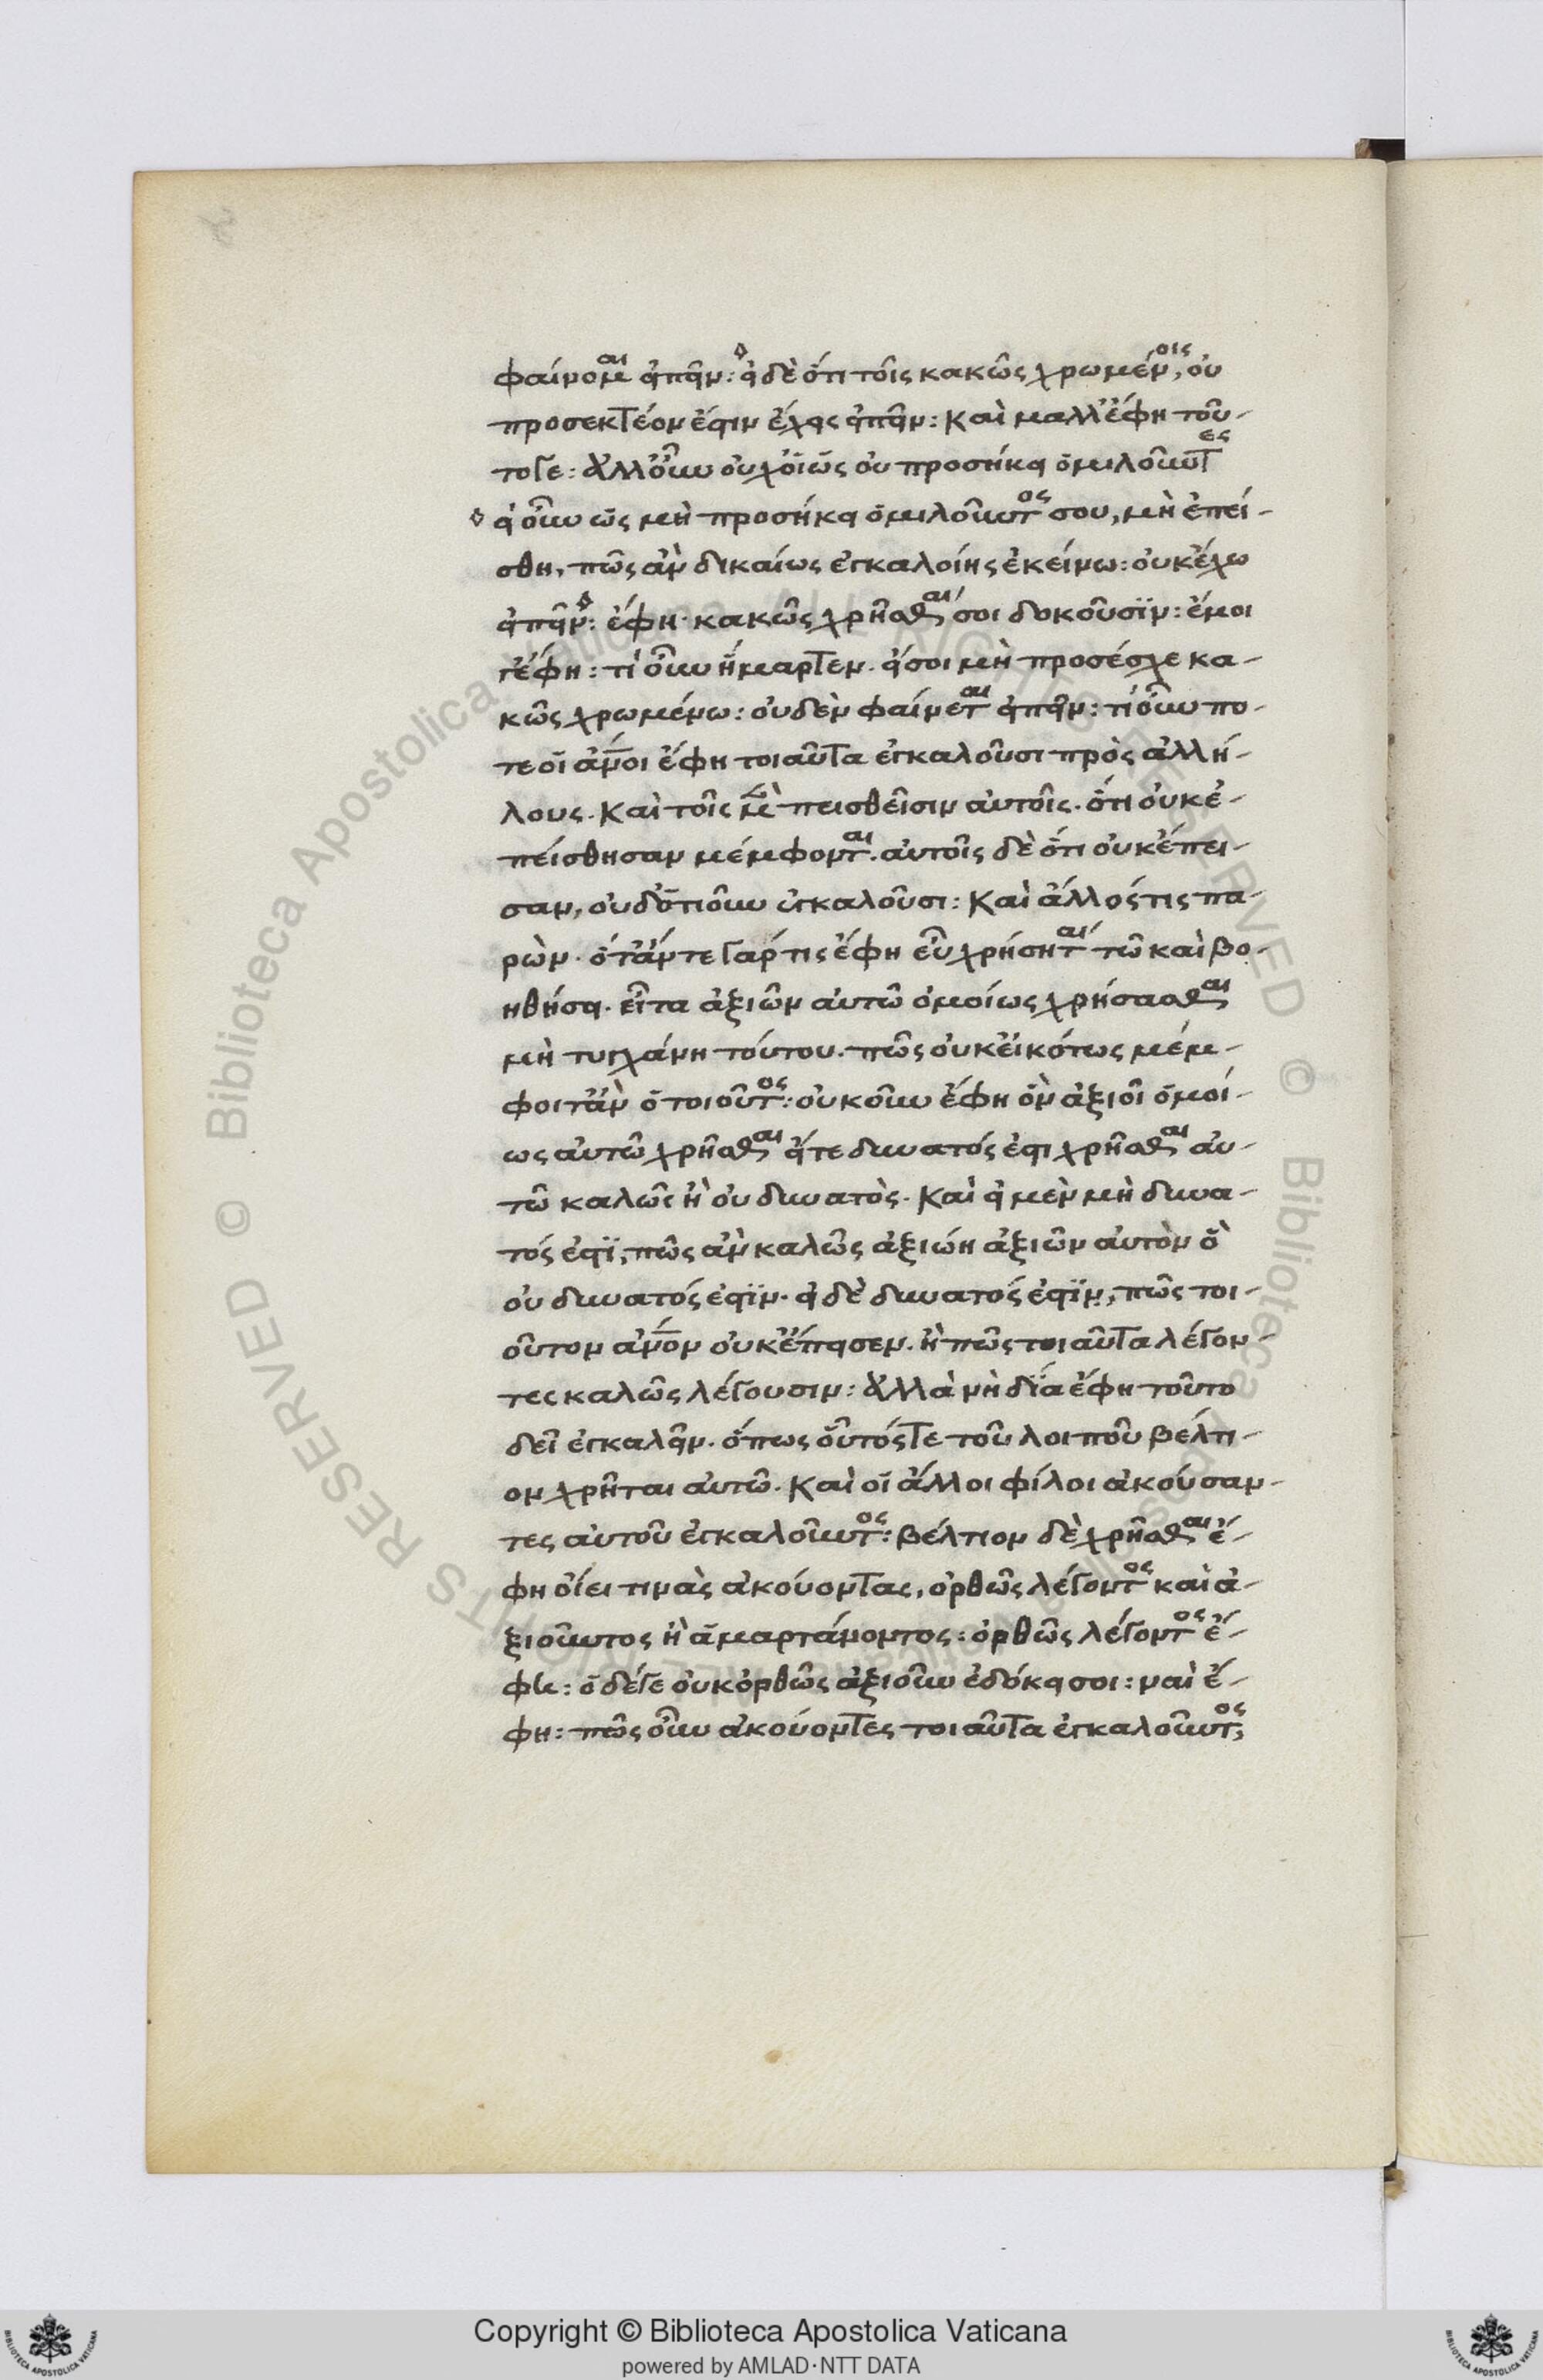 φαίνομαι εἰπεῖν: εἰ δὲ ὅτι τοῖς κακῶς χρωμένοις, οὐ
προσεκτέον ἐστὶν ἔχεις εἰπεῖν: Καὶ μάλλ' ἔφη τοῦ-
τό γε: Ἀλλ' οὖν οὐχ οἵ ὡς οὐ προσήκει ὁμιλοῦντες
εἰ οὖν ὡς μὴ προσήκει ὁμιλοῦντος σου, μὴ ἐπεί-
σθη, πῶς ἂν δικαίως ἐγκαλοίης ἐκείνω: οὐκ ἔχω
εἰπεῖν: ἔφη· κακῶς χρῆσθαί σοι δοκοῦσϊν: ἔμοι
γ' ἔφη: τί οὖν ἥμαρτεν. εἴ σοι μὴ προσέσχε κα-
κῶς χρωμένω: οὐδὲν φαίνεται εἰπεῖν: τί οὖν πο-
τε οἱ ἄνοι ἔφη τοιαῦτα ἐγκαλοῦσι πρὸς ἀλλή-
λους. Καὶ τοῖς μὲ πεισθεῖσιν αὐτοῖς. ὅτι οὐκ ἐ-
πείσθησαν μέμφονται. αὐτοῖς δὲ ὅτι οὐκ ἔπει-
σαν, οὐδ' ὁτιοῦν ἐγκαλοῦσι: Καὶ ἄλλος τις πα-
ρὼν. ὅτ' ἄν τε γάρ τις ἔφη εὖ χρήσηταί τω καὶ βο-
ηθήσει. εἶτα ἀξιῶν αὐτῶ ὁμοίως χρήσασθαι
μὴ τυγχάνη τούτου. πῶς οὐκ εἰκότως μέμ-
φοιτ' ἂν ὁ τοιοῦτος: οὐκοῦν ἔφη ὃν ἀξιοῖ ὁμοί-
ως αὐτῶ χρῆσθαι εἴτε δυνατός ἐστι χρῆσθαι αὐ-
τῶ καλῶς ἢ οὐ δυνατὸς. Καὶ εἰ μὲν μὴ δυνα-
τός ἐστϊ, πῶς ἂν καλῶς ἀξιώη ἀξιῶν αὐτὸν ὃ
οὐ δυνατός ἐστϊν. εἰ δὲ δυνατός ἐστϊν, πῶς τοι-
οῦτον ἄνον οὐκ ἔπεισεν. ἢ πῶς τοιαῦτα λέγον-
τες καλῶς λέγουσιν: Ἀλλὰ νὴ δΐα ἔφη τοῦτο
δεῖ ἐγκαλεῖν. ὅπως οὗτός τε τοῦ λοιποῦ βέλτι-
ον χρῆται αὐτῶ. Καὶ οἱ ἄλλοι φίλοι ἀκούσαν-
τες αὐτοῦ ἐγκαλοῦντος: βέλτιον δὲ χρῆσθαι ἔ-
φη οἴει τινὰς ἀκούοντας, ὀρθῶς λέγοντος καὶ ἀ-
ξιοῦντος ἢ ἁμαρτάνοντος: ὀρθῶς λέγοντος ἔ-
φη: ὁ δέ γε οὐκ ὀρθῶς ἀξιοῦν ἐδόκει σοι: ναὶ ἔ-
φη: πῶς οὖν ἀκούοντες τοιαῦτα ἐγκαλοῦντος,
Copyright © Biblioteca Apostolica Vaticana
powered by AMLAD·NTT DATA